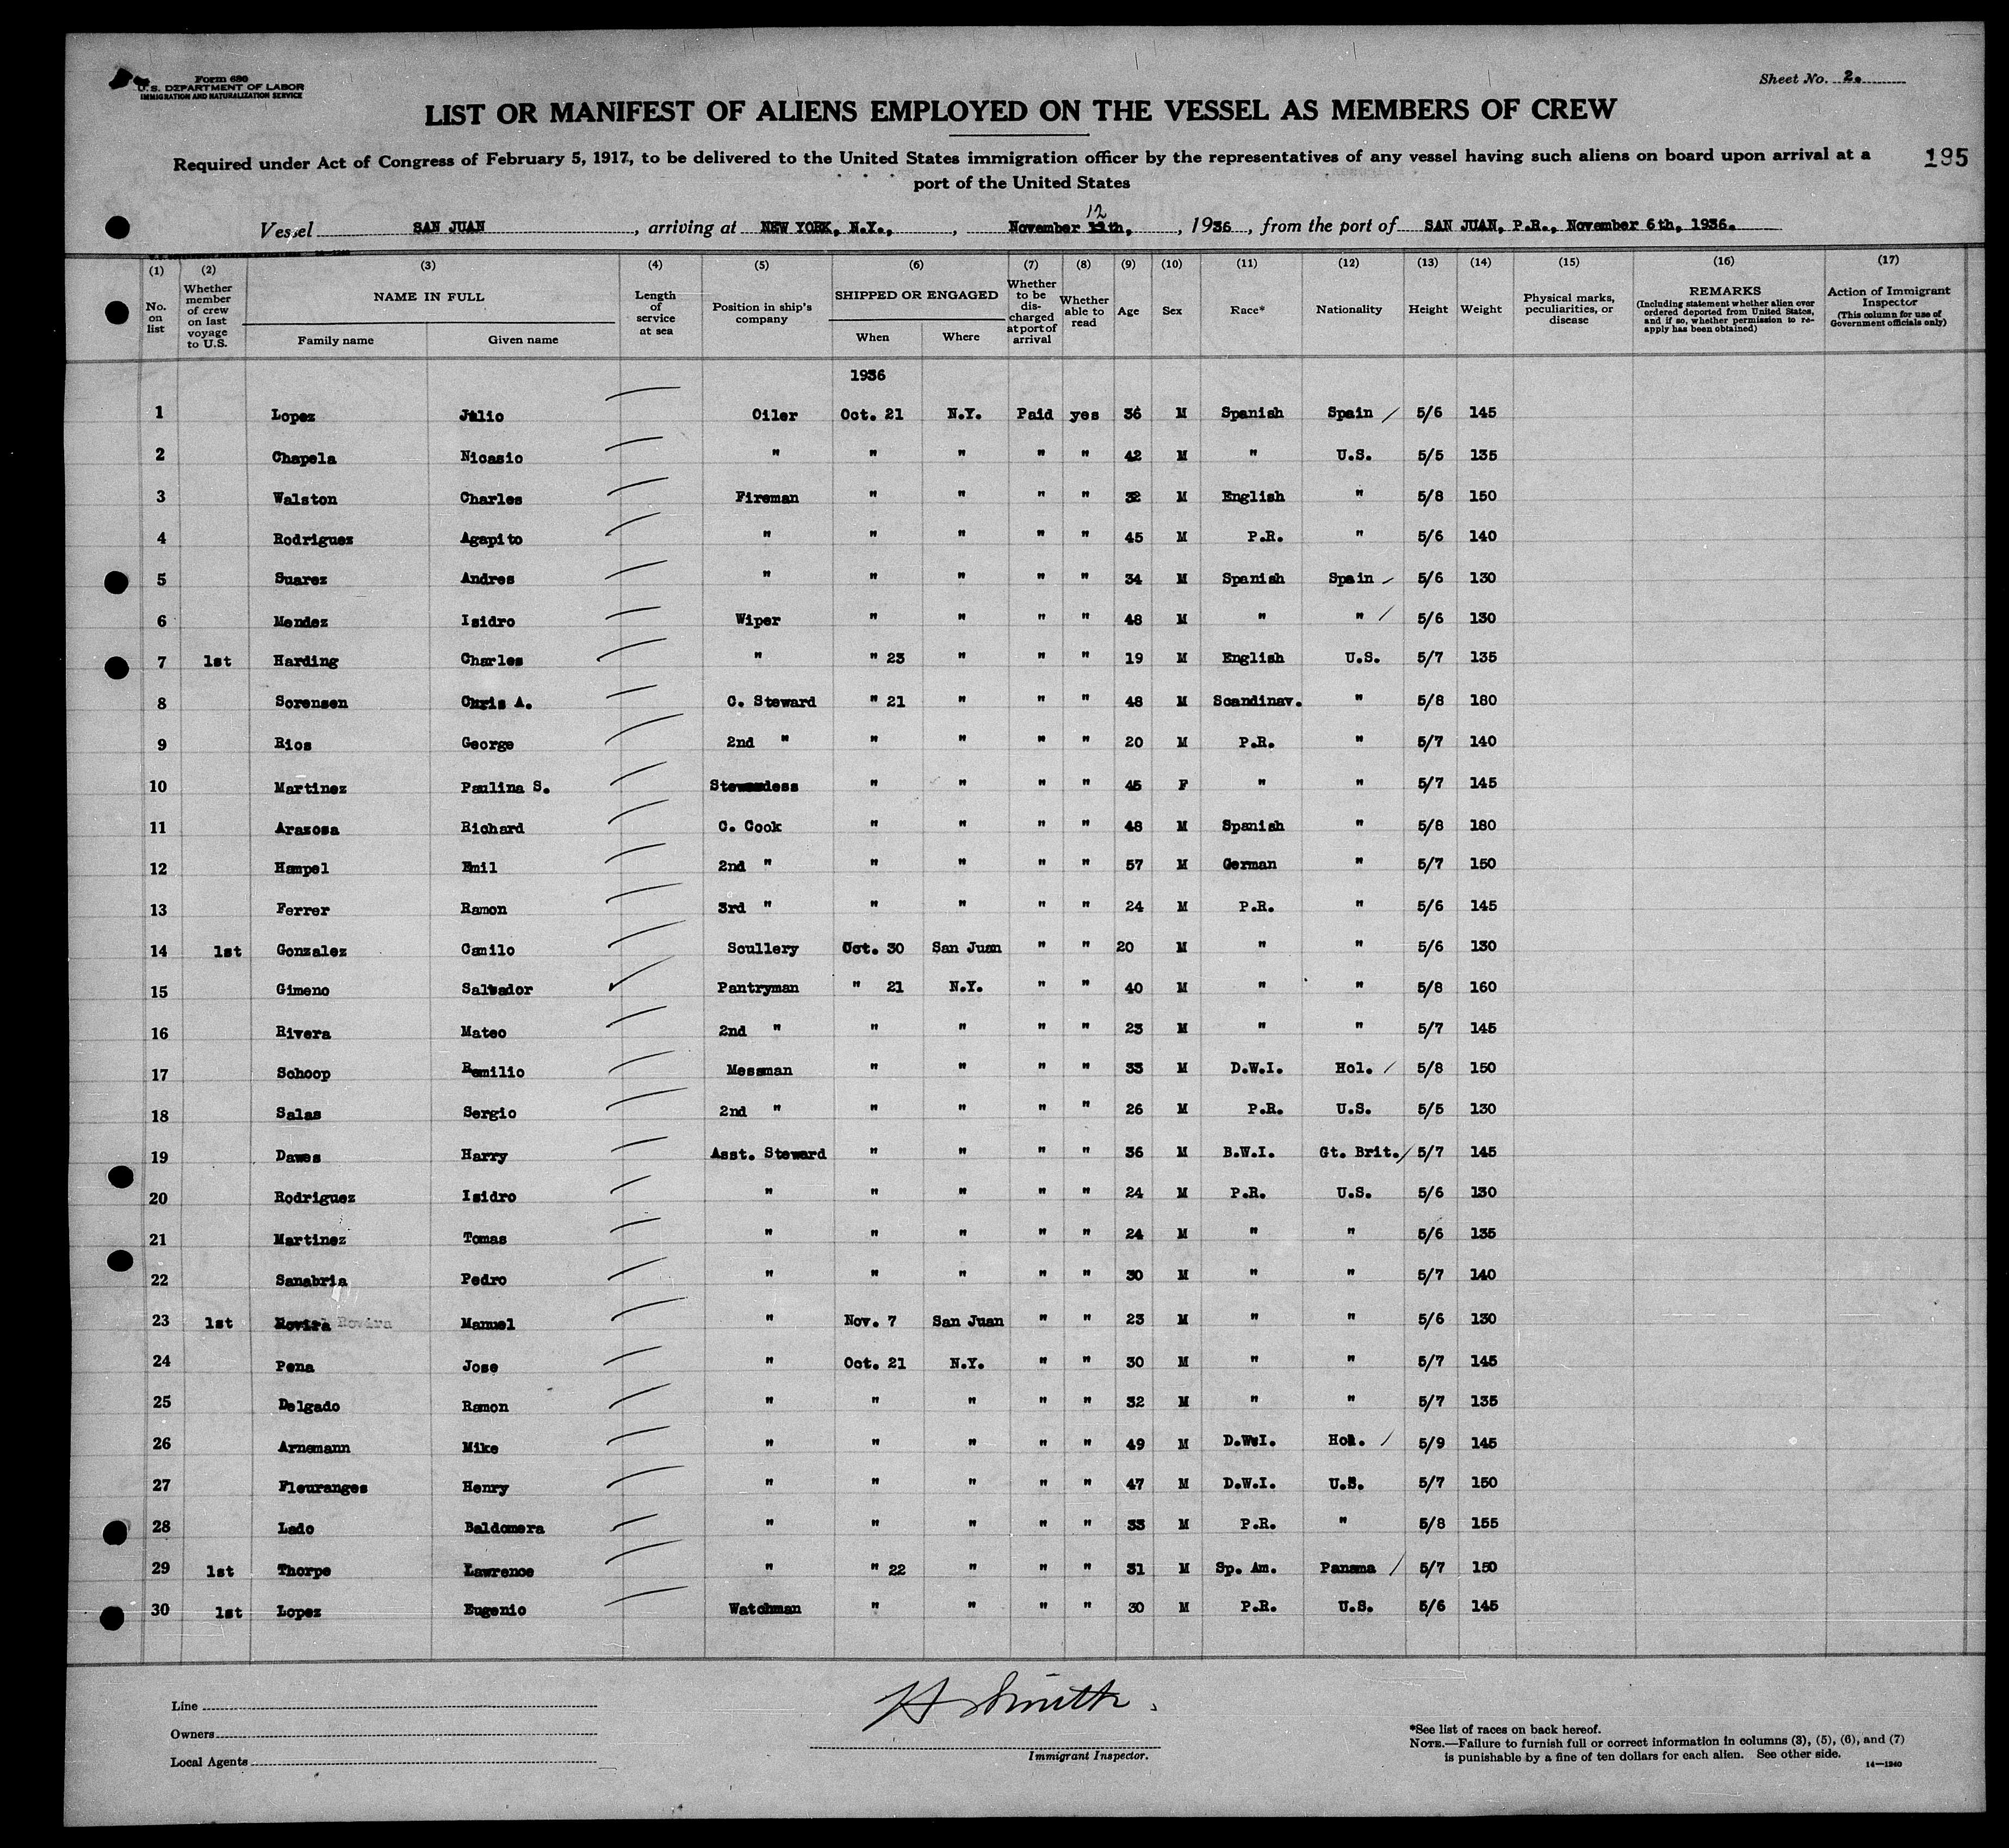 Form 680
U. S. DEPARTMENT OF LABOR
IMMIGRATION AND NATURALIZATION SERVICE
Sheet No. 2.
LIST OR MANIFEST OF ALIENS EMPLOYED ON THE VESSEL AS MEMBERS OF CREW
Required under Act of Congress of February 5, 1917, to be delivered to the United States immigration officer by the representatives of any vessel having such aliens on board upon arrival at a
port of the United States
195
12
Vessel SAN JUAN, arriving at NEW YORK, N.Y., , November 11th, , 1936, from the port of SAN JUAN, P.R., November 6th, 1936.
(1) (2) (3) (4) (5) (6) (7) (8) (9) (10) (11) (12) (13) (14) (15) (16) (17)
No. on list
Whether member of crew on last voyage to U.S.
NAME IN FULL
Family name Given name
Length of service at sea
Position in ship's company
SHIPPED OR ENGAGED
When Where
Whether to be discharged at port of arrival
Whether able to read
Age
Sex
Race*
Nationality
Height
Weight
Physical marks, peculiarities, or disease
REMARKS
(Including statement whether alien ever ordered deported from United States, and if so, whether permission to reapply has been obtained)
Action of Immigrant Inspector
(This column for use of Government officials only)
1936
1 Lopez Julio Oiler Oct. 21 N.Y. Paid yes 36 M Spanish Spain / 5/6 145
2 Chapela Nicasio " " " " " 42 M " U.S. 5/5 135
3 Walston Charles Fireman " " " " 32 M English " 5/8 150
4 Rodriguez Agapito " " " " " 45 M P.R. " 5/6 140
5 Suarez Andres " " " " " 34 M Spanish Spain / 5/6 130
6 Mendez Isidro Wiper " " " " 48 M " " / 5/6 130
7 1st Harding Charles " " 23 " " " 19 M English U.S. 5/7 135
8 Sorensen Chris A. C. Steward " 21 " " " 48 M Scandinav. " 5/8 180
9 Rios George 2nd " " " " " 20 M P.R. " 5/7 140
10 Martinez Paulina S. Stewardess " " " " 45 F " " 5/7 145
11 Arazosa Richard C. Cook " " " " 48 M Spanish " 5/8 180
12 Hampel Emil 2nd " " " " " 57 M German " 5/7 150
13 Ferrer Ramon 3rd " " " " " 24 M P.R. " 5/6 145
14 1st Gonzalez Camilo Scullery Oct. 30 San Juan " " 20 M " " 5/6 130
15 Gimeno Salvador Pantryman " 21 N.Y. " " 40 M " " 5/8 160
16 Rivera Mateo 2nd " " " " " 23 M " " 5/7 145
17 Schoop Remilio Messman " " " " 33 M D.W.I. Hol. / 5/8 150
18 Salas Sergio 2nd " " " " " 26 M P.R. U.S. 5/5 130
19 Dawes Harry Asst. Steward " " " " 36 M B.W.I. Gt. Brit. / 5/7 145
20 Rodriguez Isidro " " " " " 24 M P.R. U.S. 5/6 130
21 Martinez Tomas " " " " " 24 M " " 5/6 135
22 Sanabria Pedro " " " " " 30 M " " 5/7 140
23 1st Rovira Rovira Manuel " Nov. 7 San Juan " " 23 M " " 5/6 130
24 Pena Jose " Oct. 21 N.Y. " " 30 M " " 5/7 145
25 Delgado Ramon " " " " " 32 M " " 5/7 135
26 Arnemann Mike " " " " " 49 M D.W.I. Hol. / 5/9 145
27 Fleuranges Henry " " " " " 47 M D.W.I. U.S. 5/7 150
28 Lado Baldomera " " " " " 33 M P.R. " 5/8 155
29 1st Thorpe Lawrence " " 22 " " " 31 M Sp. Am. Panama / 5/7 150
30 1st Lopez Eugenio Watchman " " " " 30 M P.R. U.S. 5/6 145
Line
Owners
Local Agents
H Smith.
Immigrant Inspector.
*See list of races on back hereof.
NOTE.—Failure to furnish full or correct information in columns (3), (5), (6), and (7)
is punishable by a fine of ten dollars for each alien. See other side.
14—1240